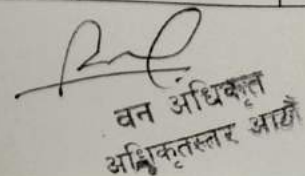 वन अधिकृत
अधिकृतस्तर आठौँ